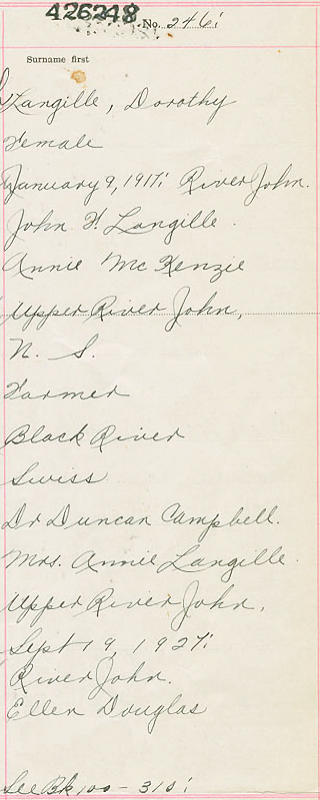 426248
No. 246
Surname first
Langille, Dorothy
Female
January 9, 1917. River John.
John H. Langille
Annie McKenzie
Upper River John,
N. S.
Farmer
Black River
Swiss
Dr Duncan Campbell.
Mrs. Annie Langille.
Upper River John.
Sept 19, 1927.
River John.
Ellen Douglas
See Bk 100 - 310